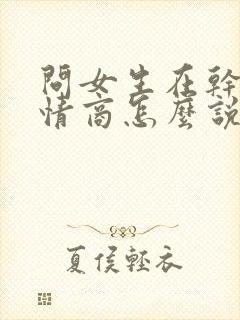 問女生在幹
情商怎麼說
夏侯輕衣